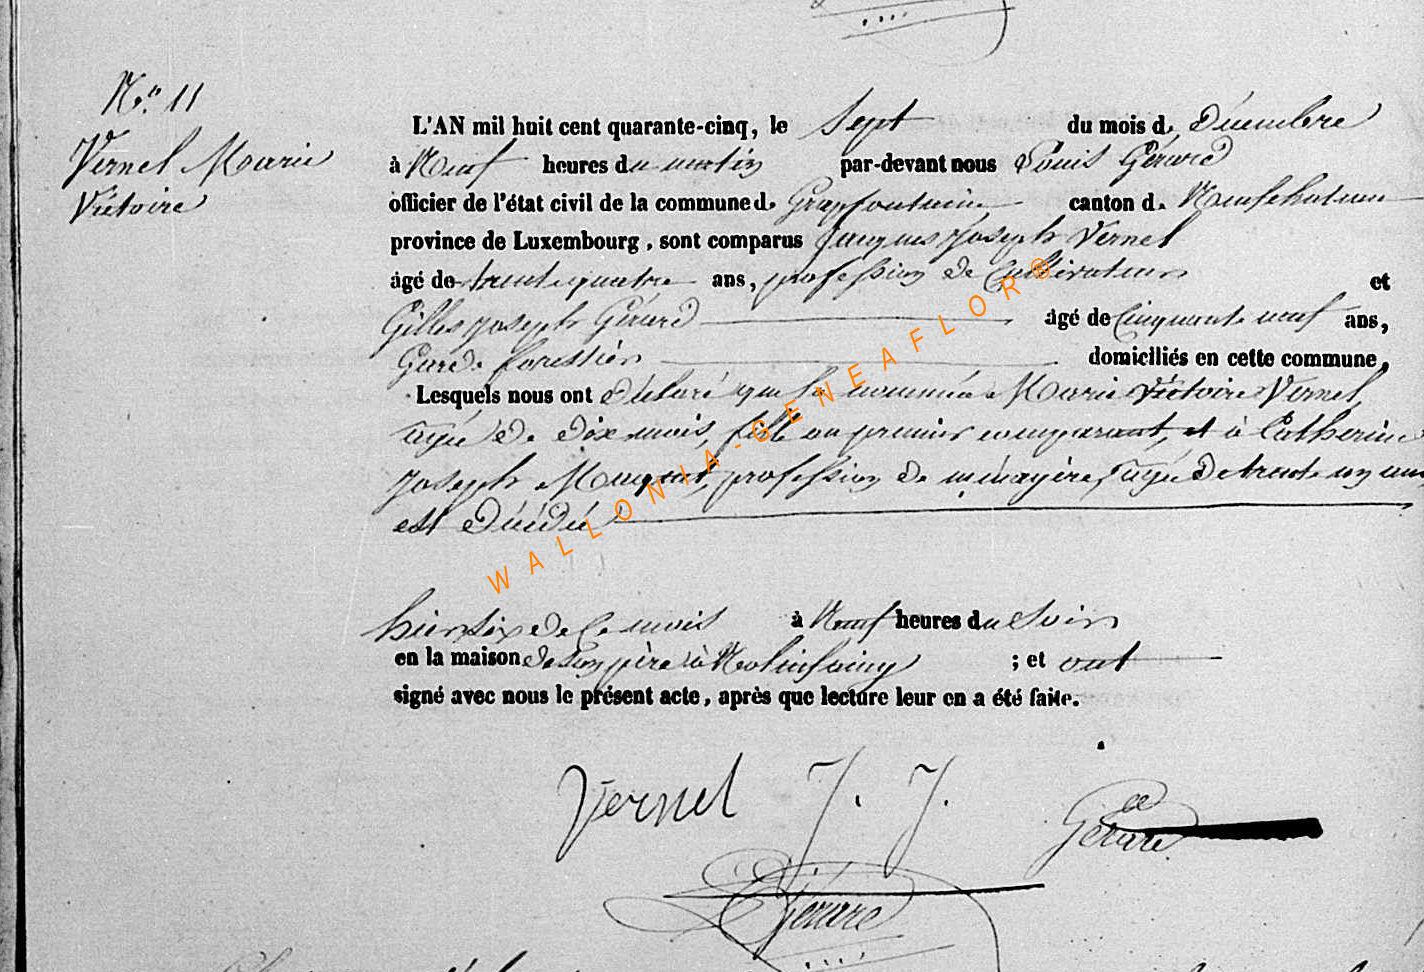 No. 11
Vernel Marie
Victoire
L'AN mil huit cent quarante-cinq, le Sept du mois de Décembre
à Neuf heures du matin par-devant nous Louis Gérard
officier de l'état civil de la commune de Grapfontaine canton de Neufchateau
province de Luxembourg, sont comparus Jacques Joseph Vernel
âgé de trente quatre ans, profession de Cultivateur et
Gilles Joseph Gérard âgé de Cinquante neuf ans,
Garde forestier domiciliés en cette commune,
Lesquels nous ont déclaré que la nommée Marie Victoire Vernel,
agée de dix mois, fille au premier comparant, et à Catherine
Joseph Mauquet, profession de ménagère, agée de trente un ans
est décédée
hier six de Ce mois à Neuf heures du Soir
en la maison de Son père à Molinfaing ; et ont
signé avec nous le présent acte, après que lecture leur en a été faite.
Vernel J. J.
Gérard
Gérard
WALLONIA-GENEAFLOR®